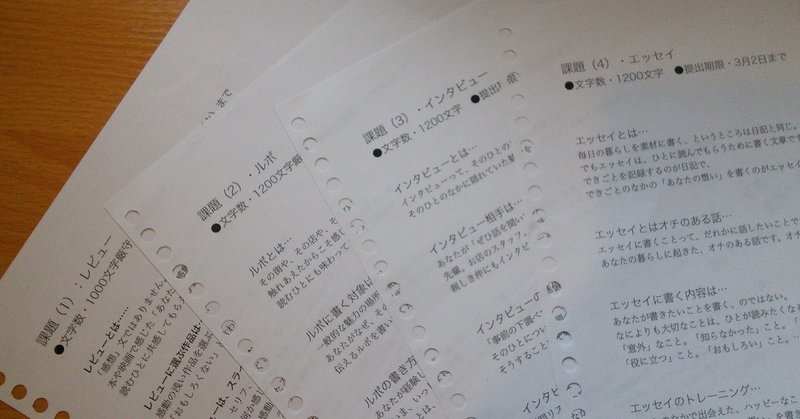 まで
課題（1）：レビュー
●文字数・1000文字厳守
レビューとは……
「感想」文ではありません。
本や映画で感じた「あなた
読むひとに共感してもらえ
レビューに選ぶ作品は…
感動の浅い作品を選ぶ
「おもしろくない」
課題（2）・ルポ
●文字数・1200文字厳
ルポとは…
その街や、その店や、そ
触れあえたからこそ感じ
読むひとにも味わって
ルポに書く対象に
一般的な魅力の場所
あなたがなぜ、そ
伝えるルポを書い
ルポの書き方
あなたが経験し
課題（3）・インタビュー
●文字数・1200文字　●提出期限
インタビューとは…
インタビューって、そのひとの
そのひとのなかに隠れていた魅
インタビュー相手は…
あなたが「ぜひ話を聞い
先輩。お店のスタッフ。
親しき仲にもインタビ
インタビューの
「事前の下調べ
そのひとについ
そうすること
課題（4）・エッセイ
●文字数・1200文字　●提出期限・3月2日まで
エッセイとは…
毎日の暮らしを素材に書く、というところは日記と同じ。
でもエッセイは、ひとに読んでもらうために書く文章です
できごとを記録するのが日記で、
できごとのなかの「あなたの想い」を書くのがエッセイ
エッセイとはオチのある話…
エッセイに書くことって、だれかに話したいことで
あなたの暮らしに起きた、オチのある話です。オチ
エッセイに書く内容は…
あなたが書きたいことを書く、のではない。
なによりも大切なことは、ひとが読みたくなる
「意外」なこと。「知らなかった」こと。「
「役に立つ」こと。「おもしろい」こと。
エッセイのトレーニング…